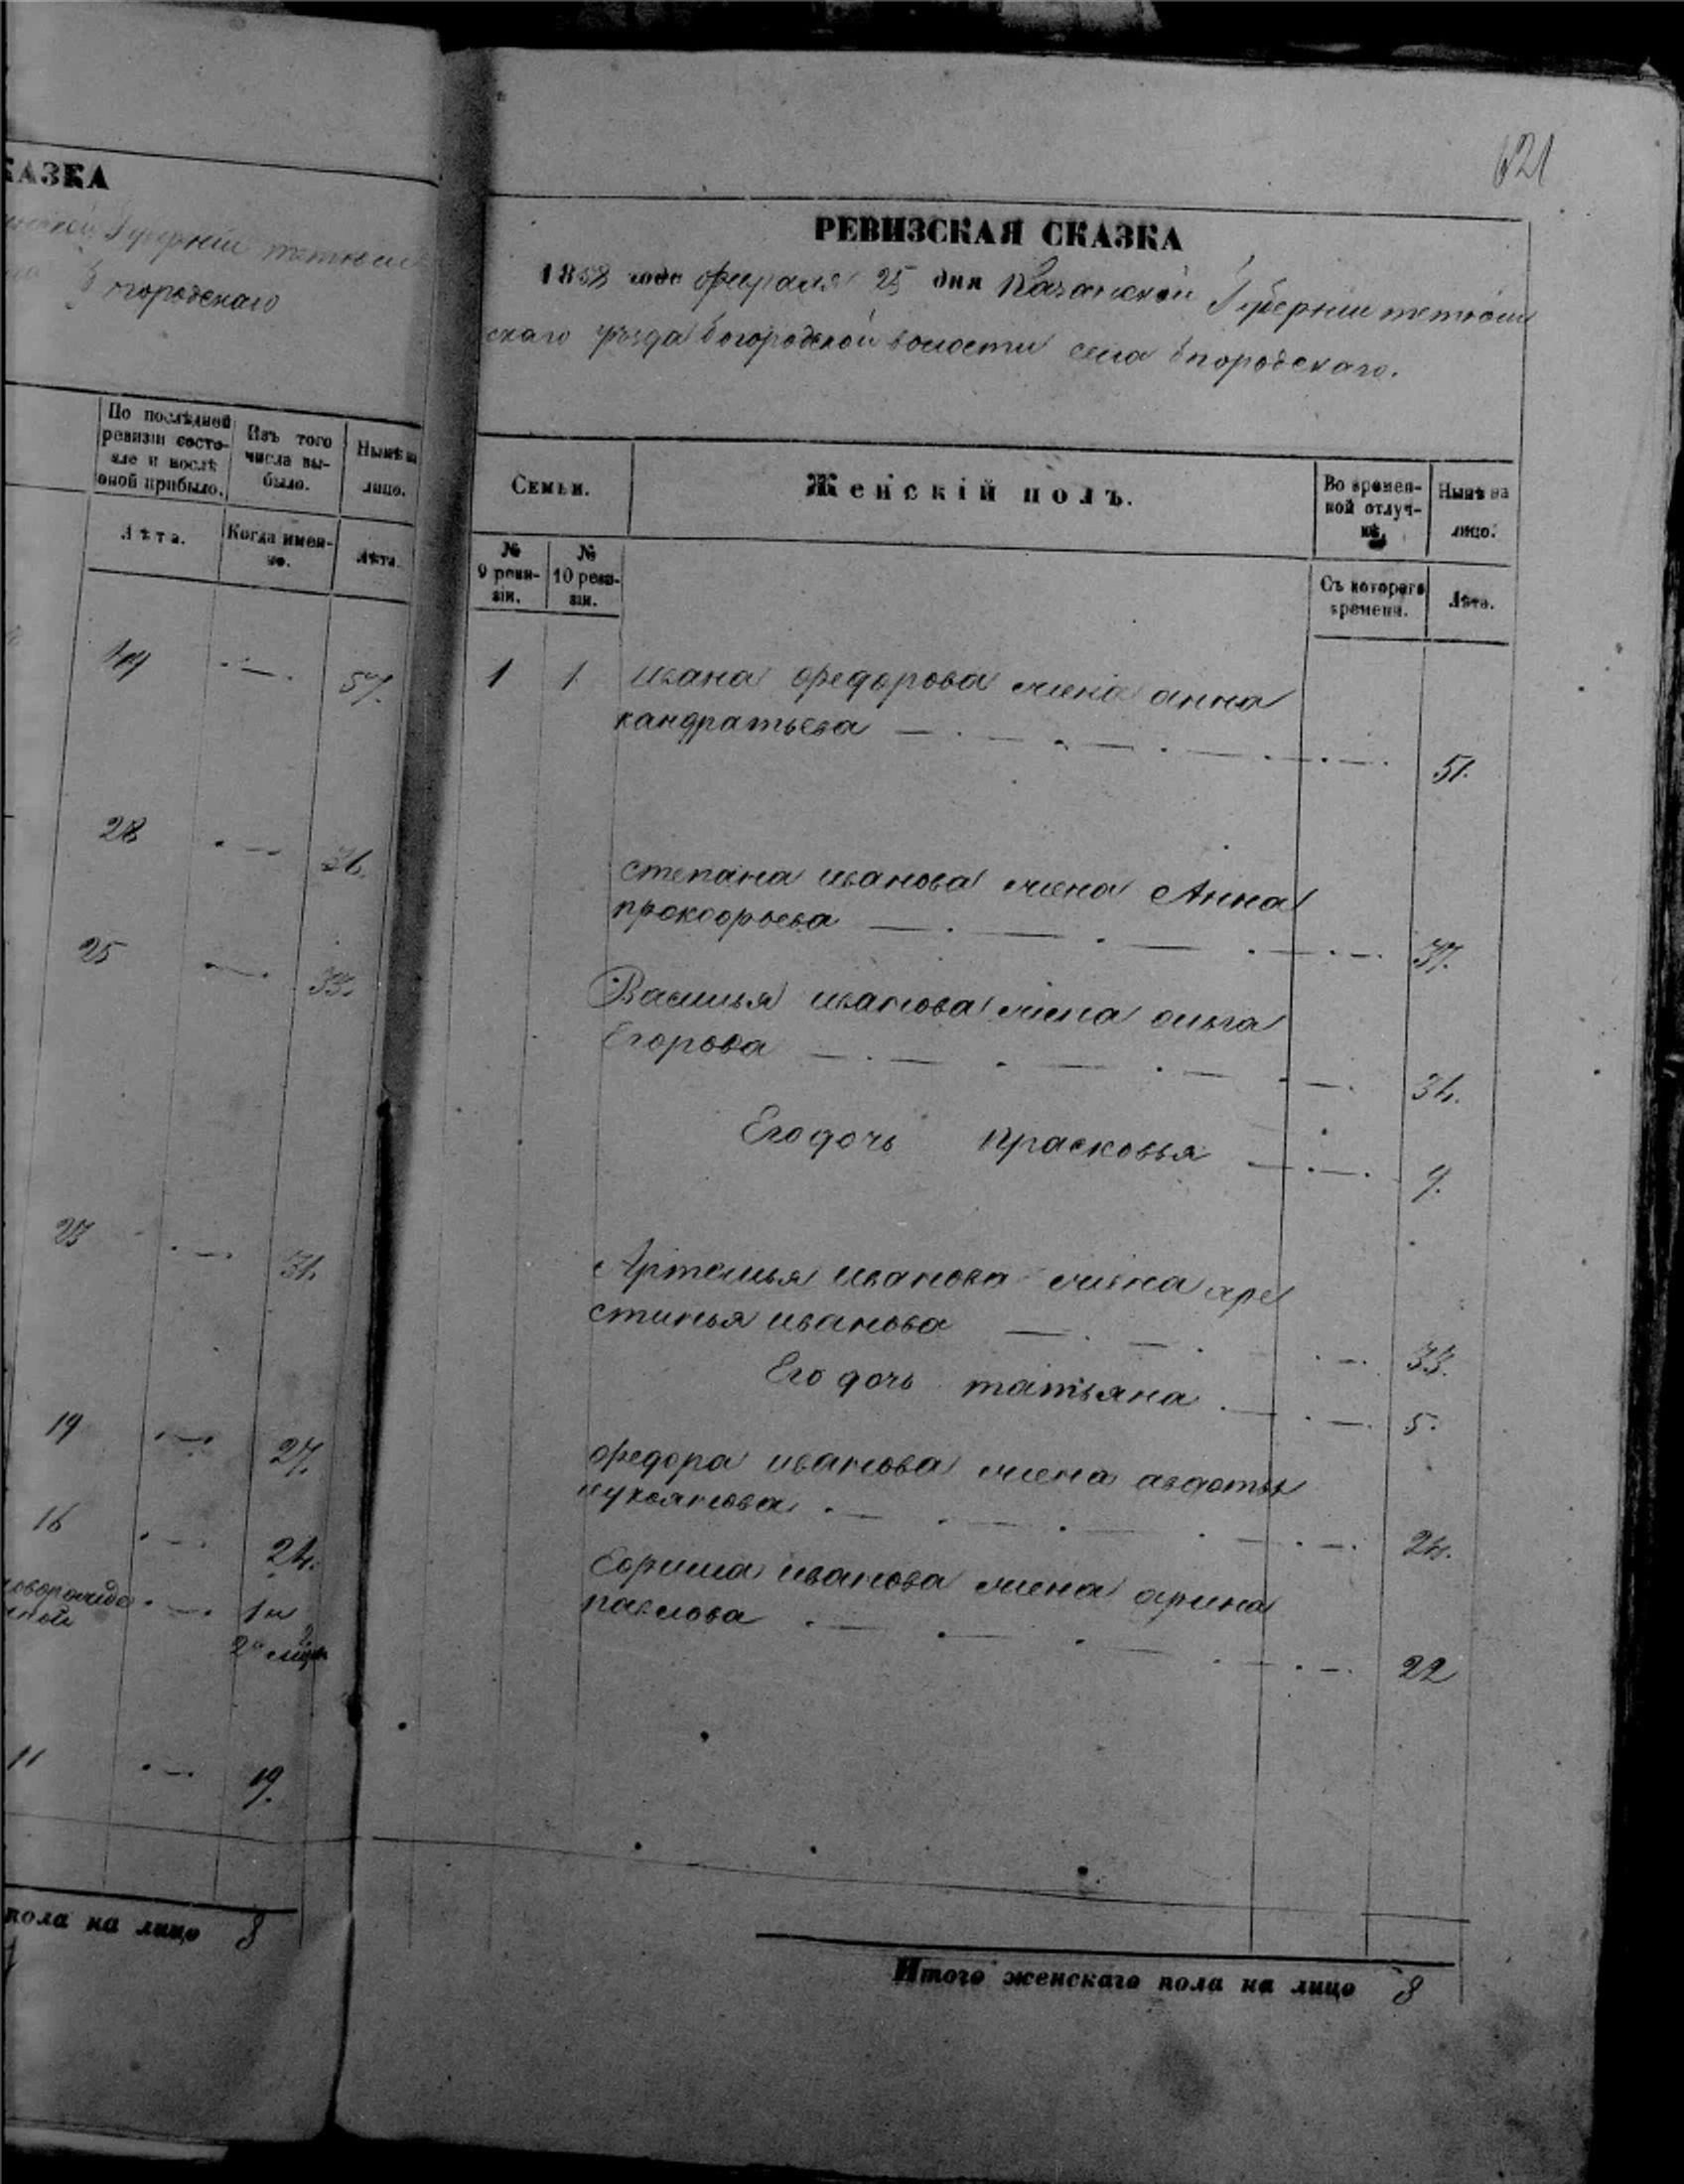 КАЗКА
Губерніи тетюш
Богородскаго
По послѣдней
ревизіи состо-
яло и послѣ
оной прибыло.
Изъ того
числа вы-
было.
Нынѣ на
лицо.
Лѣта.
Когда имен-
но.
Лѣта.
49 57.
28 36.
25 33.
23 31.
19 27.
16 24.
новорожде
нной
1 и
2 мцa
11 19.
пола на лицо 8
621
РЕВИЗСКАЯ СКАЗКА
1858 года февраля 25 дня Казанской Губерніи тетюш
скаго уѣзда Богородской волости села Богородскаго.
Семьи.
Женскій полъ.
Во времен-
ной отлуч-
кѣ.
Нынѣ на
лицо.
№
9 реви-
зіи.
№
10 реви-
зіи.
Съ котораго
времени.
Лѣта.
1 1 ивана федорова жена анна
кандратьева 51.
степана иванова жена Анна
прокофьева 37.
Василья иванова жена ольга
Егорова 34.
Его дочь прасковья 9.
Артемья иванова жена хре
стинья иванова 33.
Его дочь татьяна 5.
федора иванова жена авдотья
лукоянова 24.
Ефима иванова жена арина
павлова 22
Итого женскаго пола на лицо 8